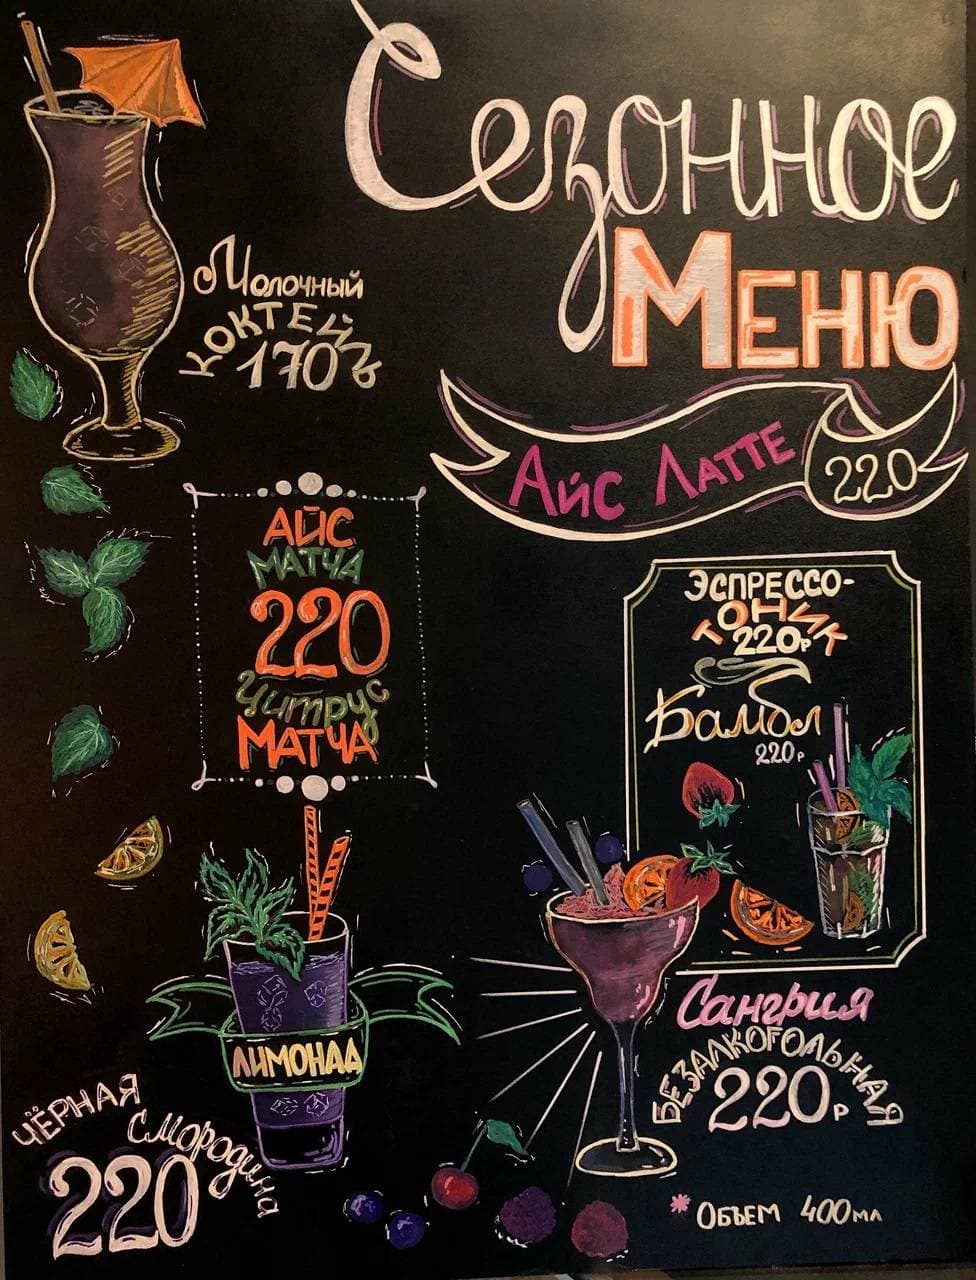 Сезонное
Меню
Молочный
коктейль
170
Айс Латте
220
Айс
матча
220
Цитрус
матча
Эспрессо-
тоник
220р
Бамбл
220р
Лимонад
Чёрная
смородина
220
Сангрия
безалкогольная
220р
* Объем 400мл